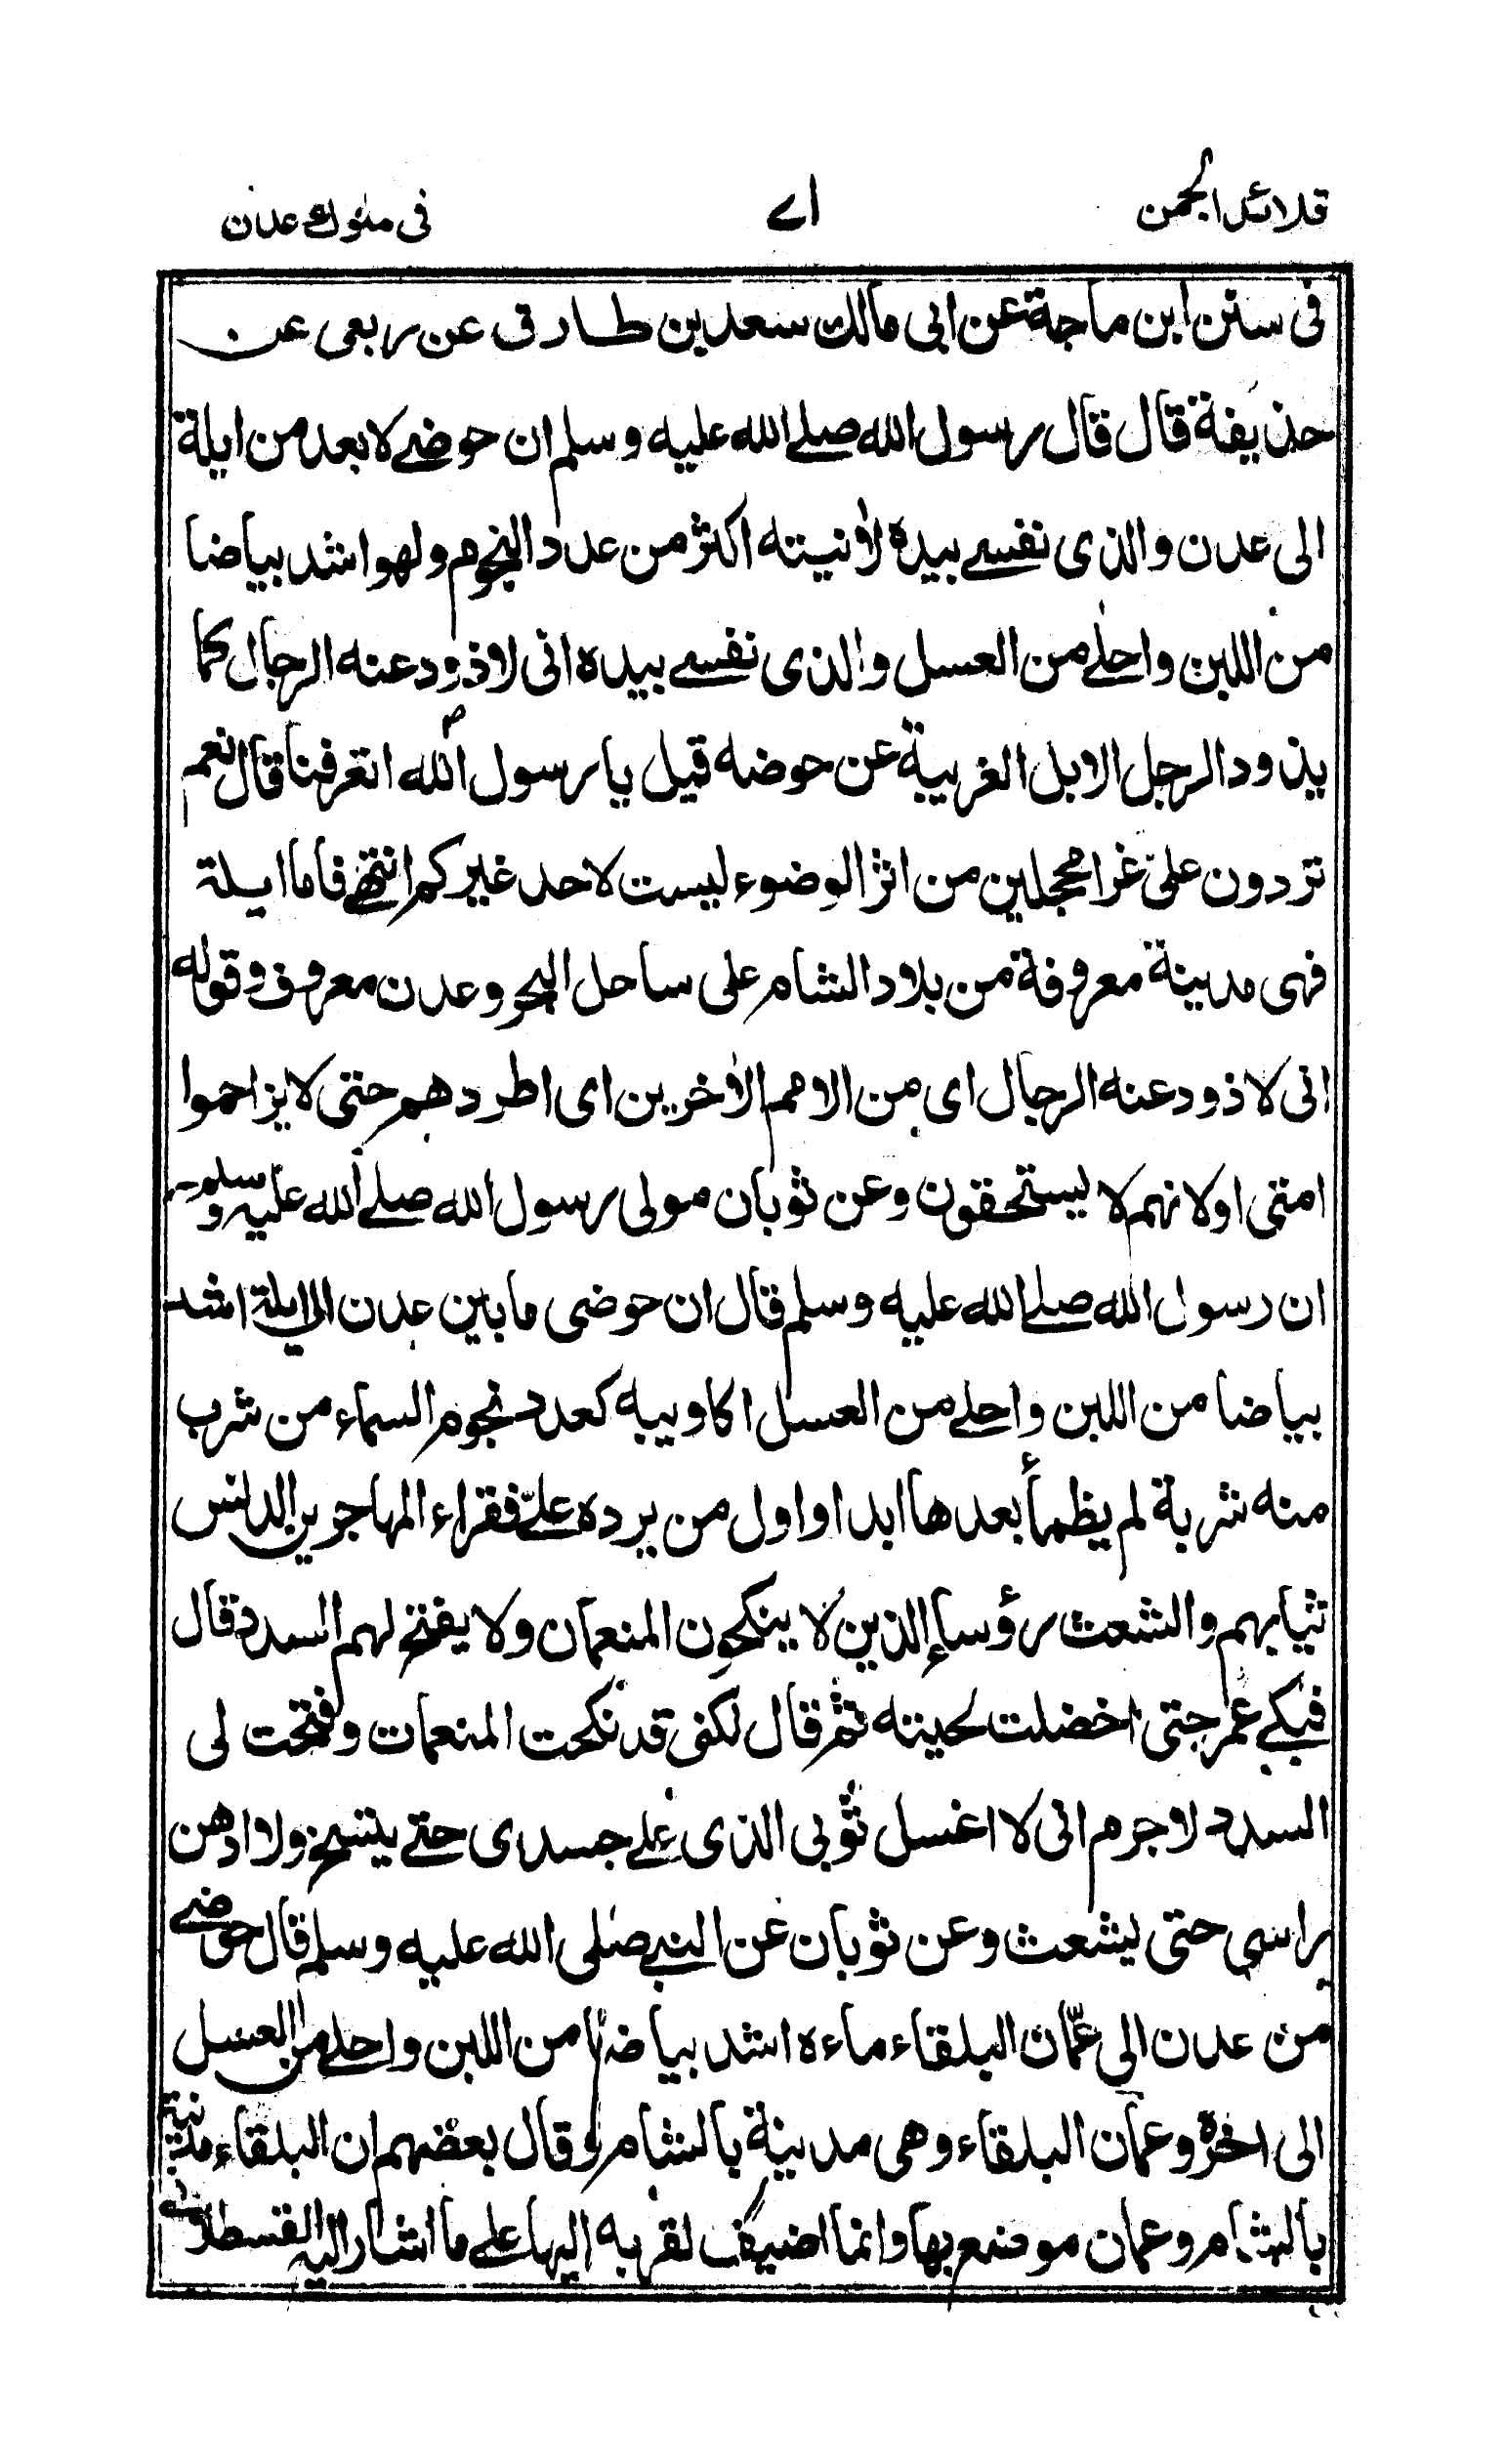 قلائد الجمن ٧١ فى ملوك عدن
فى سنن ابن ماجة عن ابى مالك سعد بن طارق عن ربعى عن
حذيفة قال قال رسول الله صلے الله عليه وسلم ان حوضے لابعد من ايلة
الى عدن والذى نفسے بيده لآنيته اكثر من عدد النجوم ولهو اشد بياضا
من اللبن واحلے من العسل والذى نفسے بيده انى لاذود عنه الرجال كما
يذود الرجل الابل الغريبة عن حوضه قيل يا رسول الله اتعرفنا قال نعم
تردون علىّ غرا محجلين من اثر الوضوء ليست لاحد غيركم انتهے فاما ايلة
فهى مدينة معروفة من بلاد الشام على ساحل البحر وعدن معروف وقوله
انى لاذود عنه الرجال اى من الامم الآخرين اى اطردهم حتى لا يزاحموا
امتى او لانهم لا يستحقون وعن ثوبان مولى رسول الله صلے الله عليه وسلم
ان رسول الله صلے الله عليه وسلم قال ان حوضى ما بين عدن الى ايلة اشد
بياضا من اللبن واحلے من العسل اكاويبه كعدد نجوم السماء من شرب
منه شربة لم يظمأ بعدها ابدا واول من يرده علےّ فقراء المهاجرين الدنس
ثيابهم والشعث رؤسا الذين لا ينكحون المنعمان ولا يفتح لهم السدد قال
فبكے عمر حتى اخضلت لحيته ثم قال لكنى قد نكحت المنعمات وفتحت لى
السدد لا جرم انى لا اغسل ثوبى الذى علے جسدى حتے يتسخ ولا ادهن
براسى حتى يشعث وعن ثوبان عن النبے صلى الله عليه وسلم قال حوضے
من عدن الى عمّان البلقاء ماءه اشد بياضا من اللبن واحلے من العسل
الى اخره وعمان البلقاء وهى مدينة بالشام وقال بعضهم ان البلقاء مدينة
بالشام وعمان موضع بها وانما اضيف لقربه اليها علے ما اشار اليه القسطلانے